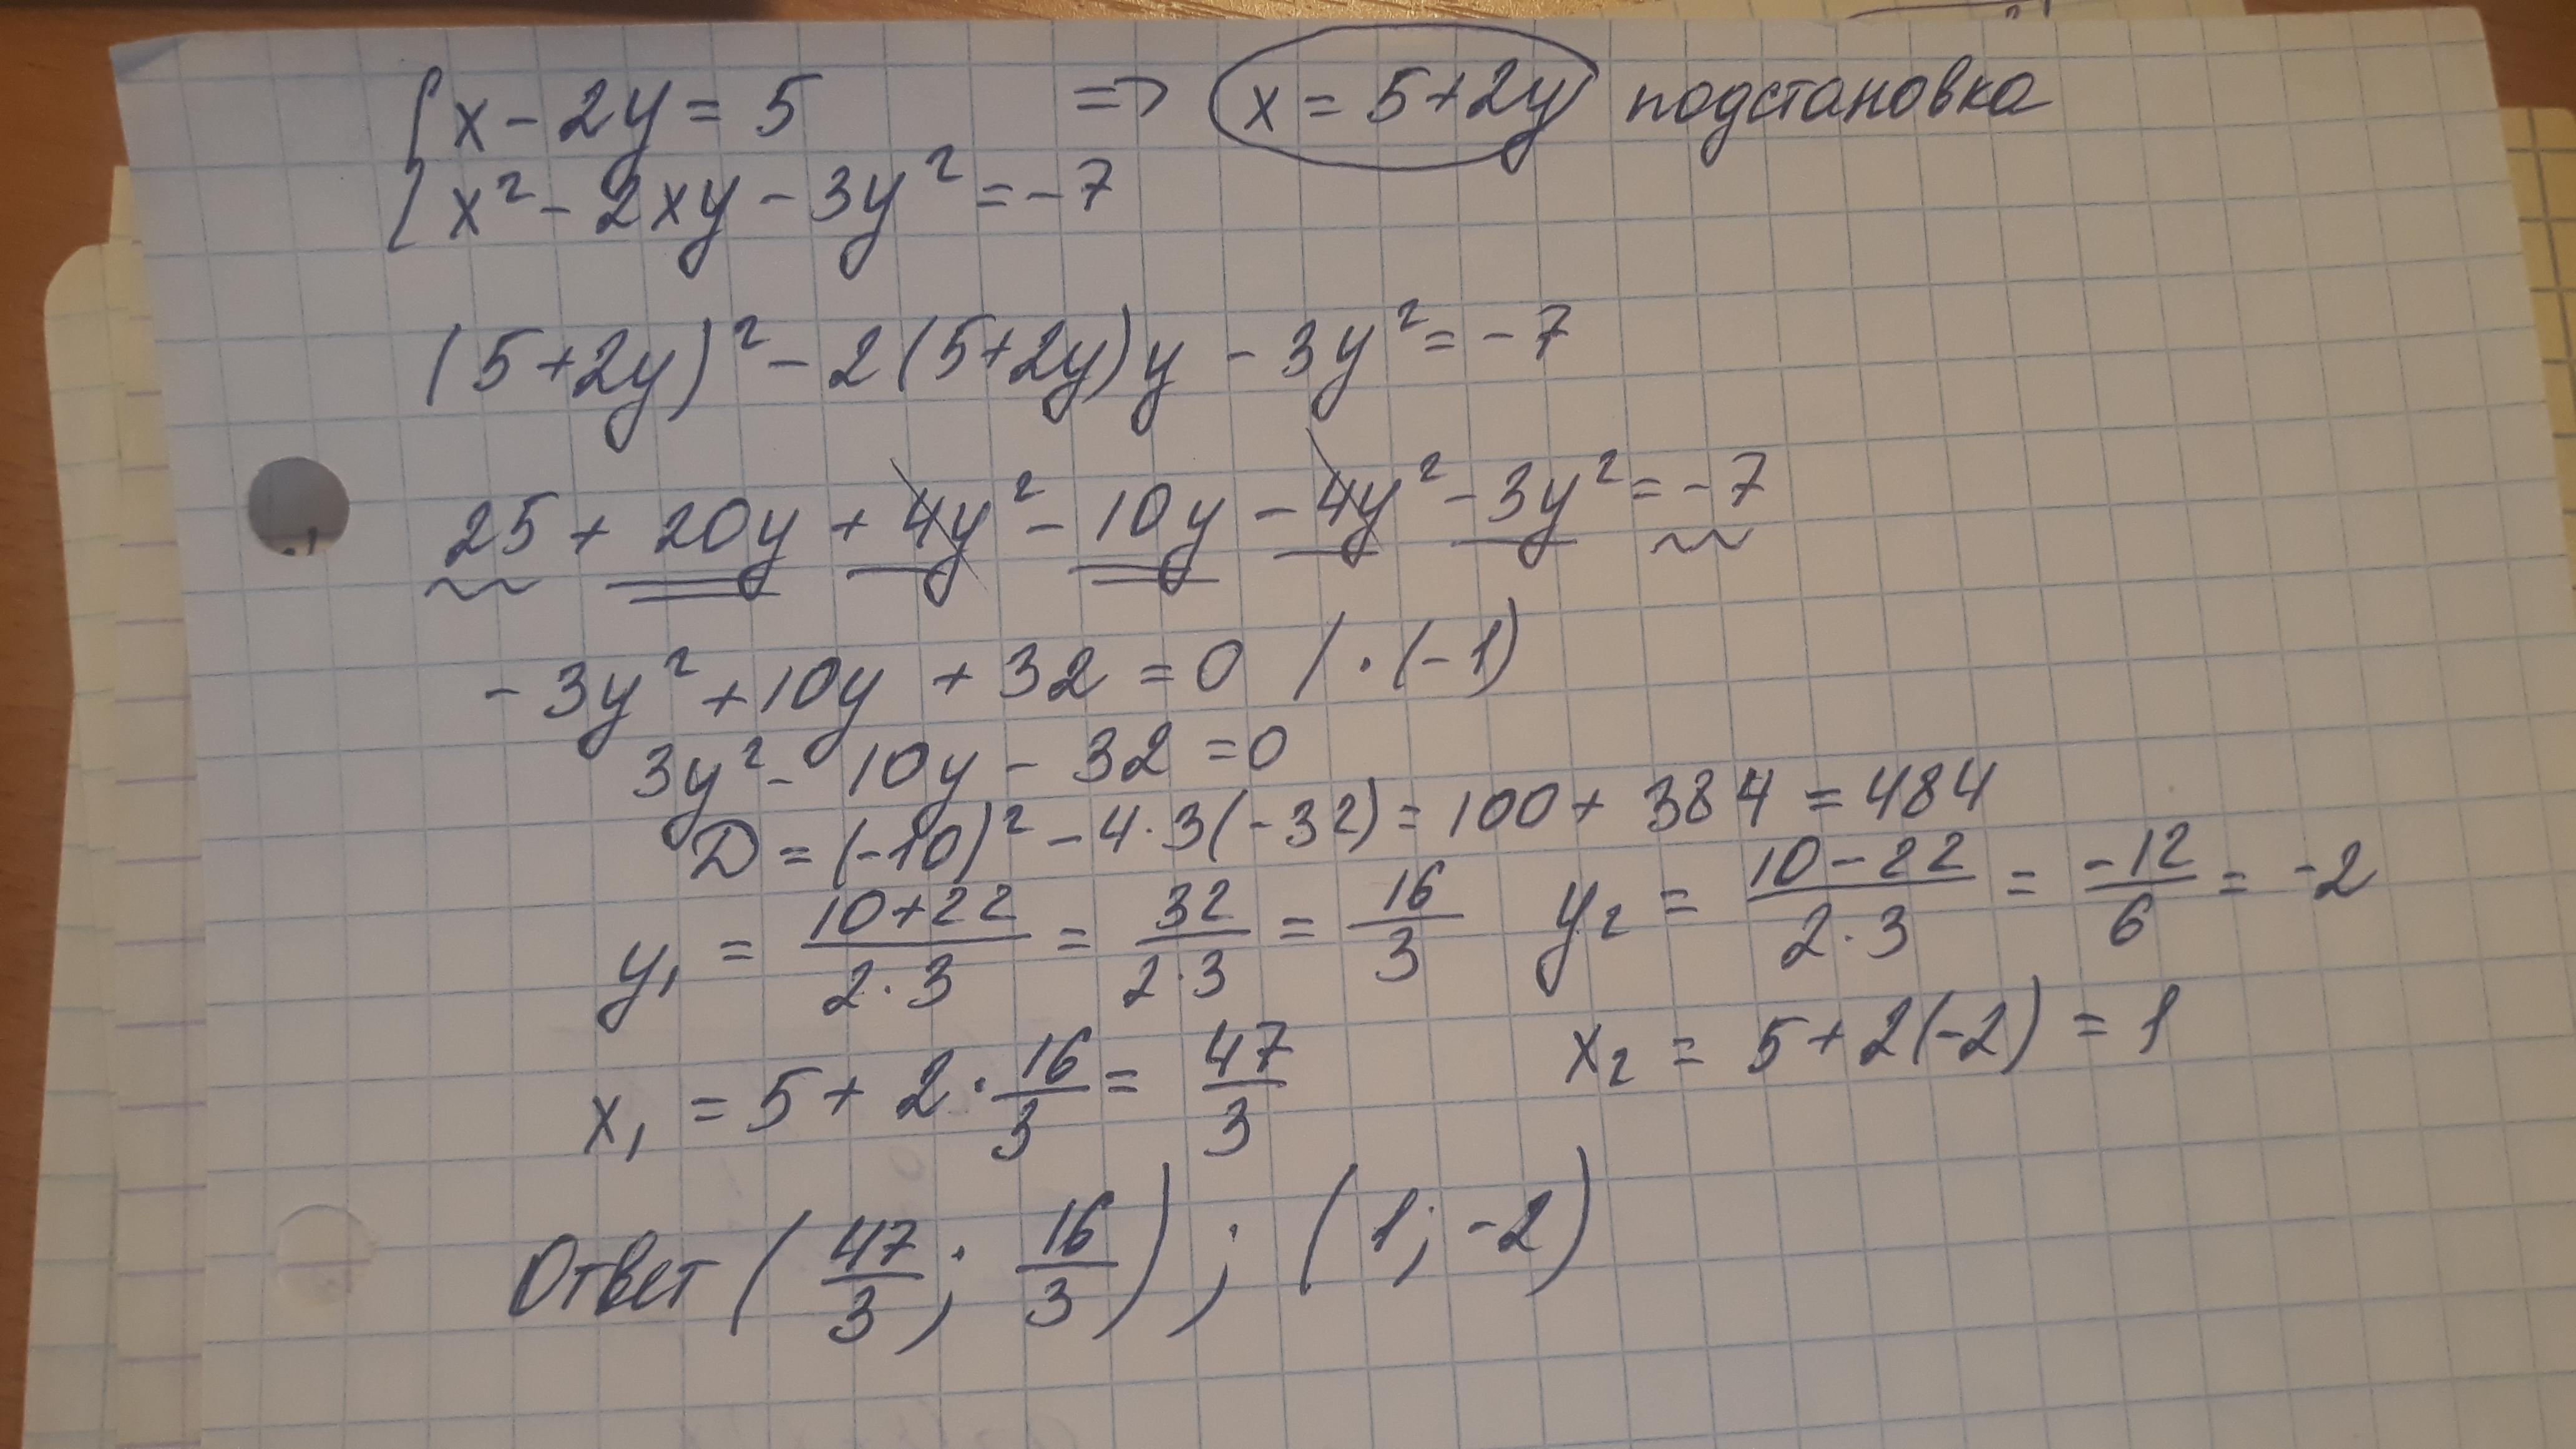 { x - 2y = 5 => x = 5+2y подстановка
x² - 2xy - 3y² = -7
(5+2y)² - 2(5+2y)y - 3y² = -7
25 + 20y + 4y² - 10y - 4y² - 3y² = -7
-3y² + 10y + 32 = 0 / · (-1)
3y² - 10y - 32 = 0
D = (-10)² - 4·3(-32) = 100 + 384 = 484
y₁ = (10+22)/(2·3) = 32/(2·3) = 16/3 y₂ = (10-22)/(2·3) = -12/6 = -2
x₁ = 5 + 2 · 16/3 = 47/3 x₂ = 5+2(-2) = 1
Ответ (47/3; 16/3); (1; -2)